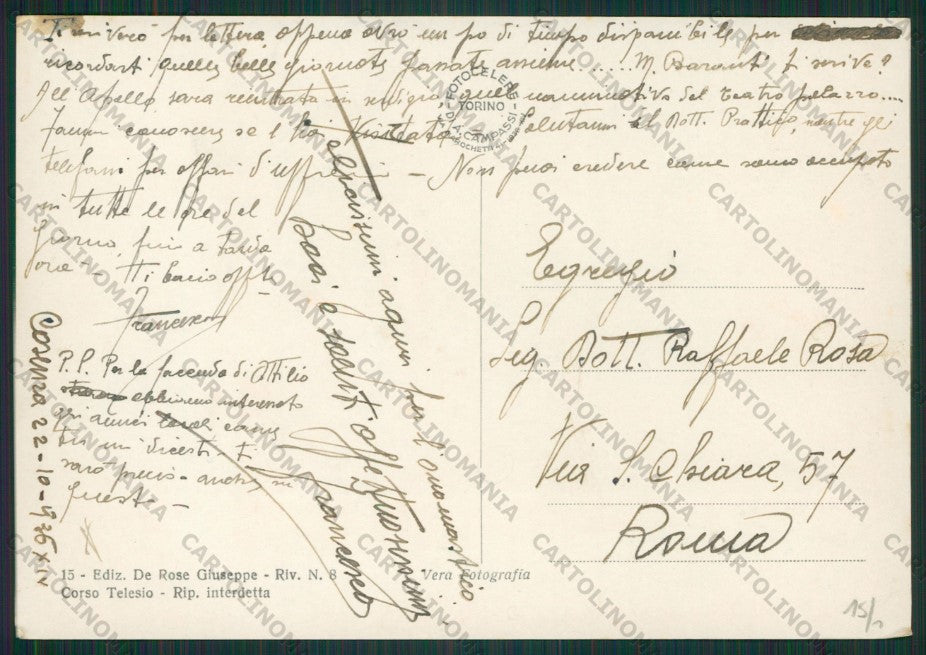 Ti scriverò per lettera appena avrò un po di tempo disponibile per
ricordarti quelle belle giornate passate assieme..... M. Baranti ti scrive?
All'Apollo sarà rientrata in quel nominativo del teatro palazzo....
Fammi conoscere se l'hai visitata Salutami il Dott. Prattico, mentre gli
telefoni per affari d'ufficio — Non puoi credere come sono occupato
in tutte le ore del
giorno, fino a tarda
ora — Ti bacio aff.te
Francesco
P.S. Per la faccenda di Attilio
abbiamo interessato
gli amici locali come
tu mi dicesti — ti
sarò preciso anche in
questo —
Cosenza 22-10-936 XIV
Carissimi auguri per l'onomastico
baci e saluti affettuosissimi
Francesco
FOTOCELERE
TORINO
DI A. CAMPASSI
Egregio
Sig. Dott. Raffaele Rosa
Via S. Chiara, 57
Roma
15 - Ediz. De Rose Giuseppe - Riv. N. 8
Corso Telesio - Rip. interdetta
Vera Fotografia
15/
CARTOLINOMANIA